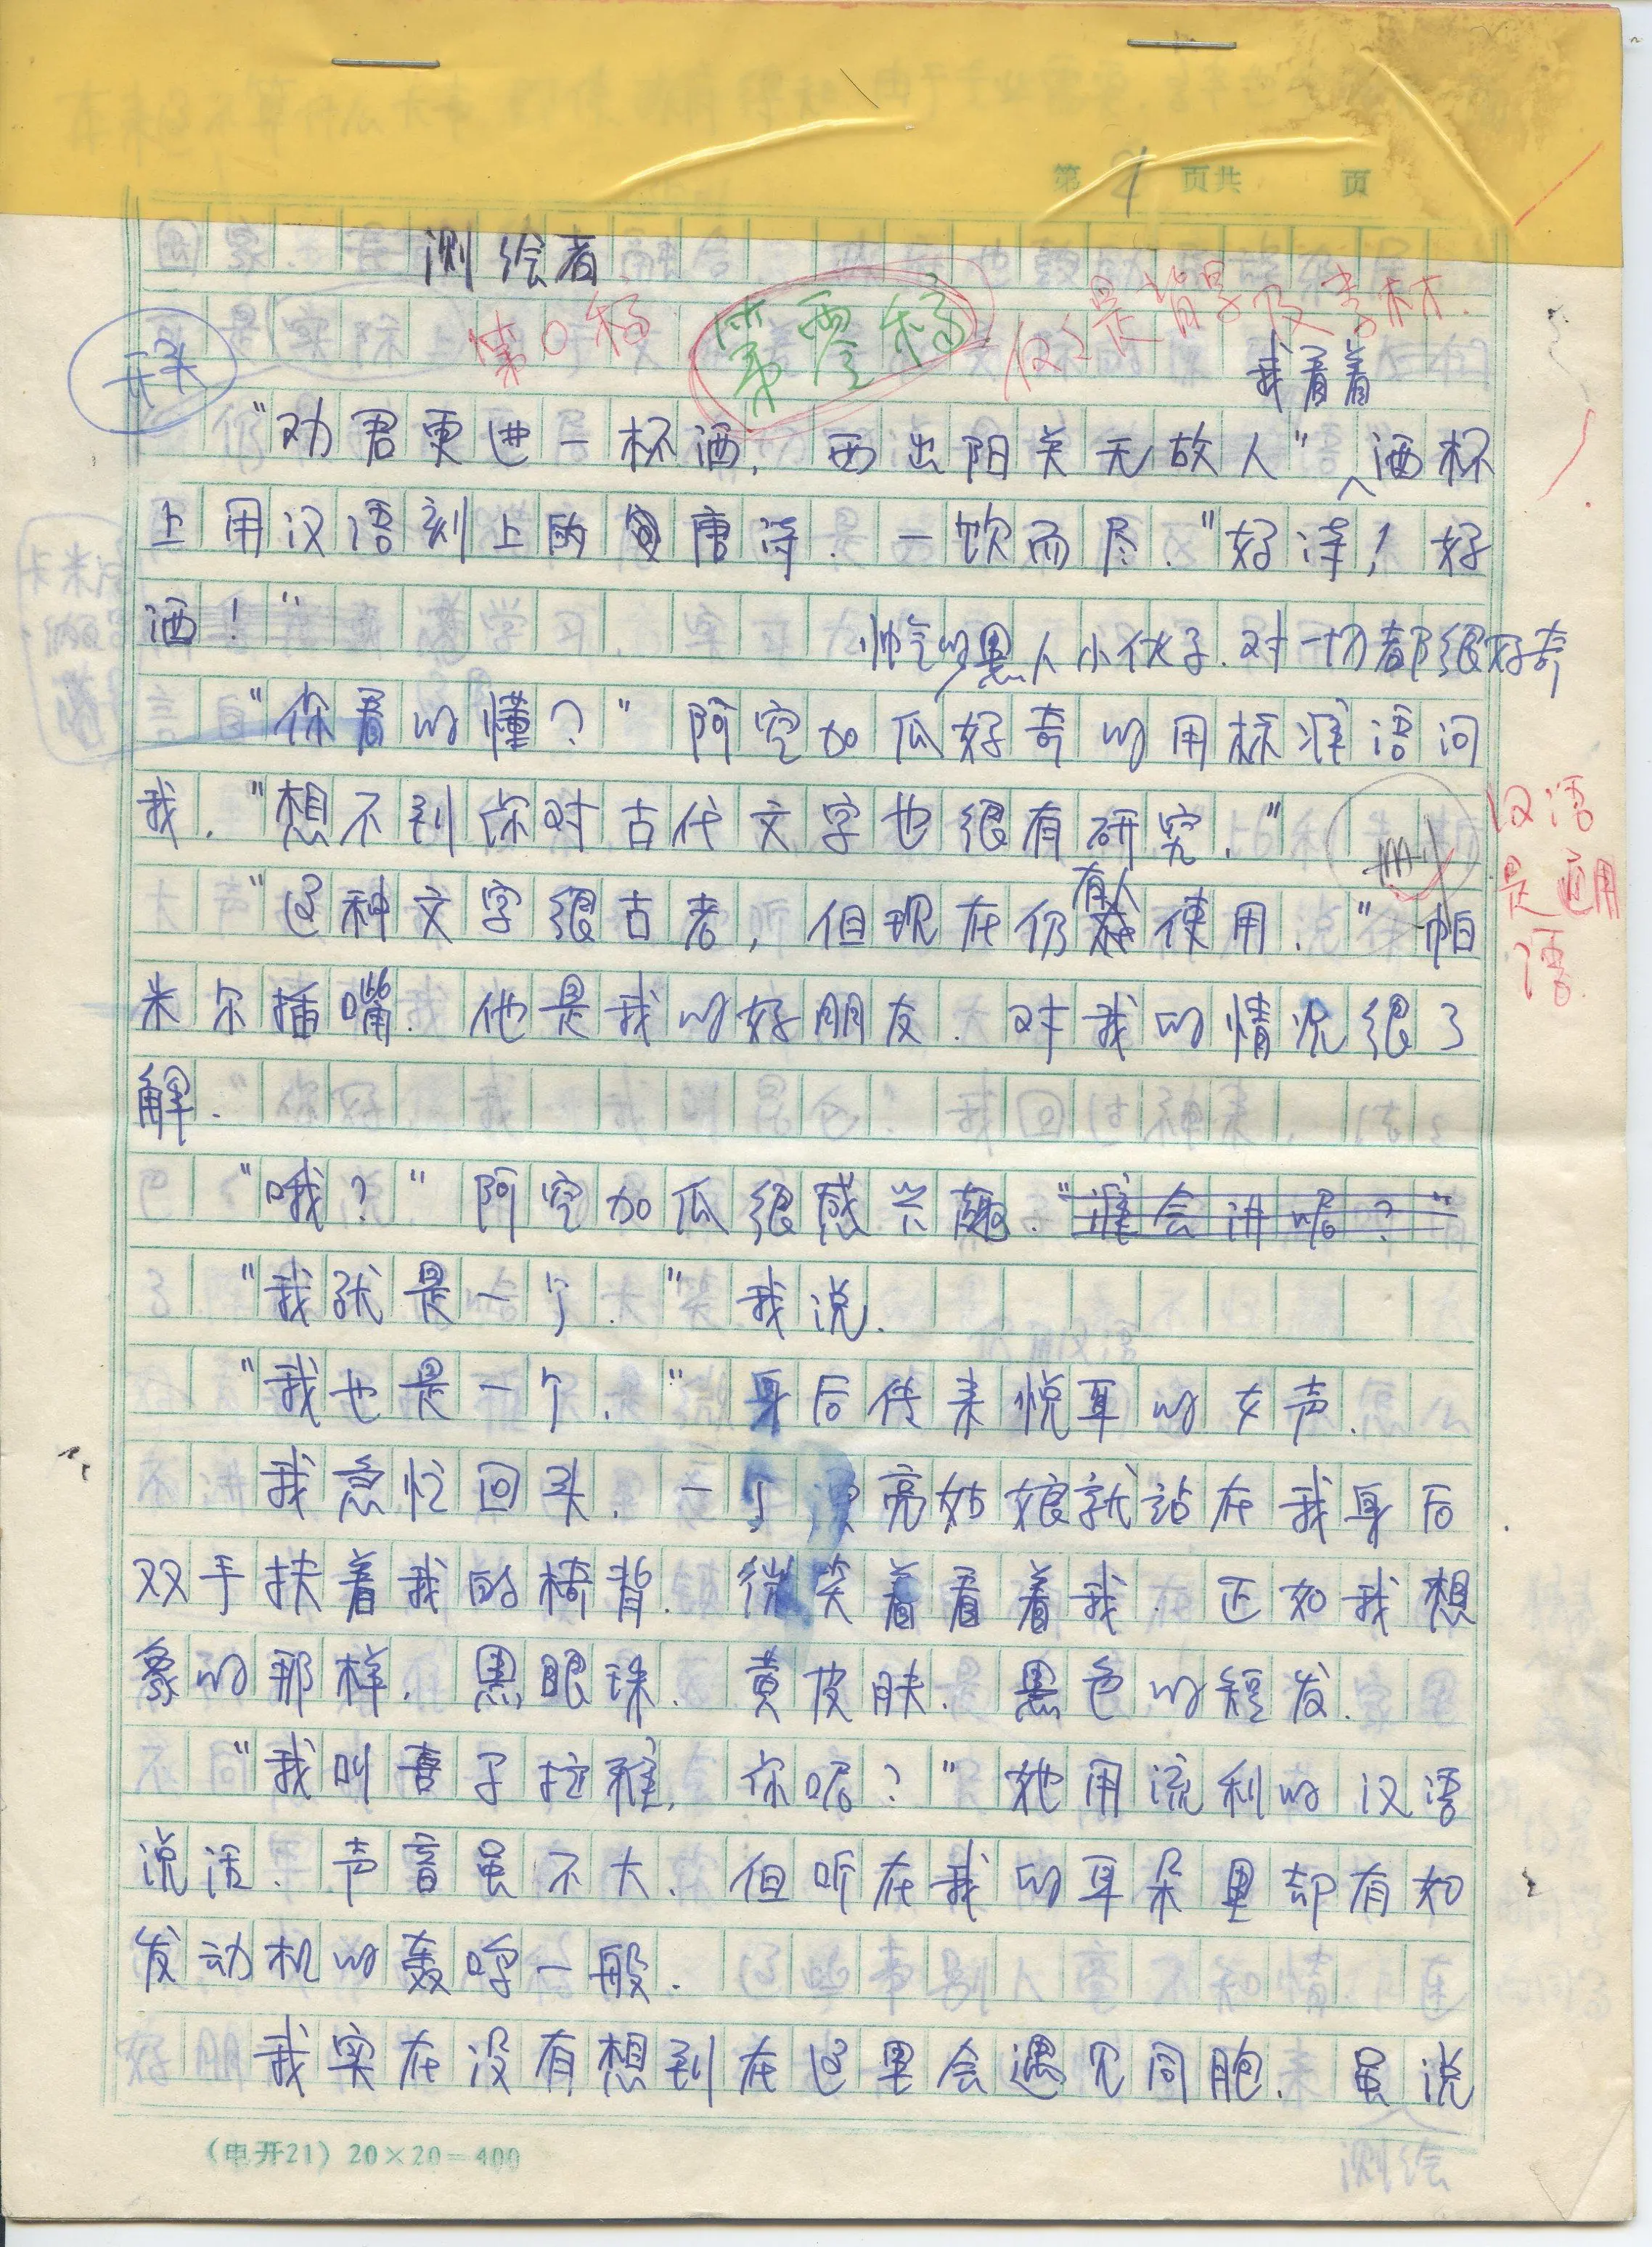 第 1 页共 页
测绘者
第0稿 第零稿 仅是背景及素材.
开头
我看着
"劝君更进一杯酒,西出阳关无故人"酒杯
上用汉语刻上的唐诗.一饮而尽."好诗!好
酒!"
帅气的黑人小伙子.对一切都很好奇
"你看的懂?"阿空加瓜好奇的用标准语问
我."想不到你对古代文字也很有研究."
汉语
是通用
语.
删
有人
"这种文字很古老,但现在仍使用."帕
米尔插嘴.他是我的好朋友.对我的情况很了
解."
"哦?"阿空加瓜很感兴趣."谁会讲呢?"
"我就是一个."我说.
"我也是一个."身后传来悦耳的女声.
我急忙回头.一个漂亮姑娘就站在我身后
双手扶着我的椅背.微笑着看着我.正如我想
象的那样.黑眼珠.黄皮肤.黑色的短发.
"我叫喜子拉雅,你呢?"她用流利的汉语
说话.声音虽不大.但听在我的耳朵里却有如
发动机的轰鸣一般.
我实在没有想到在这里会遇见同胞.虽说
(电开21)20×20=400